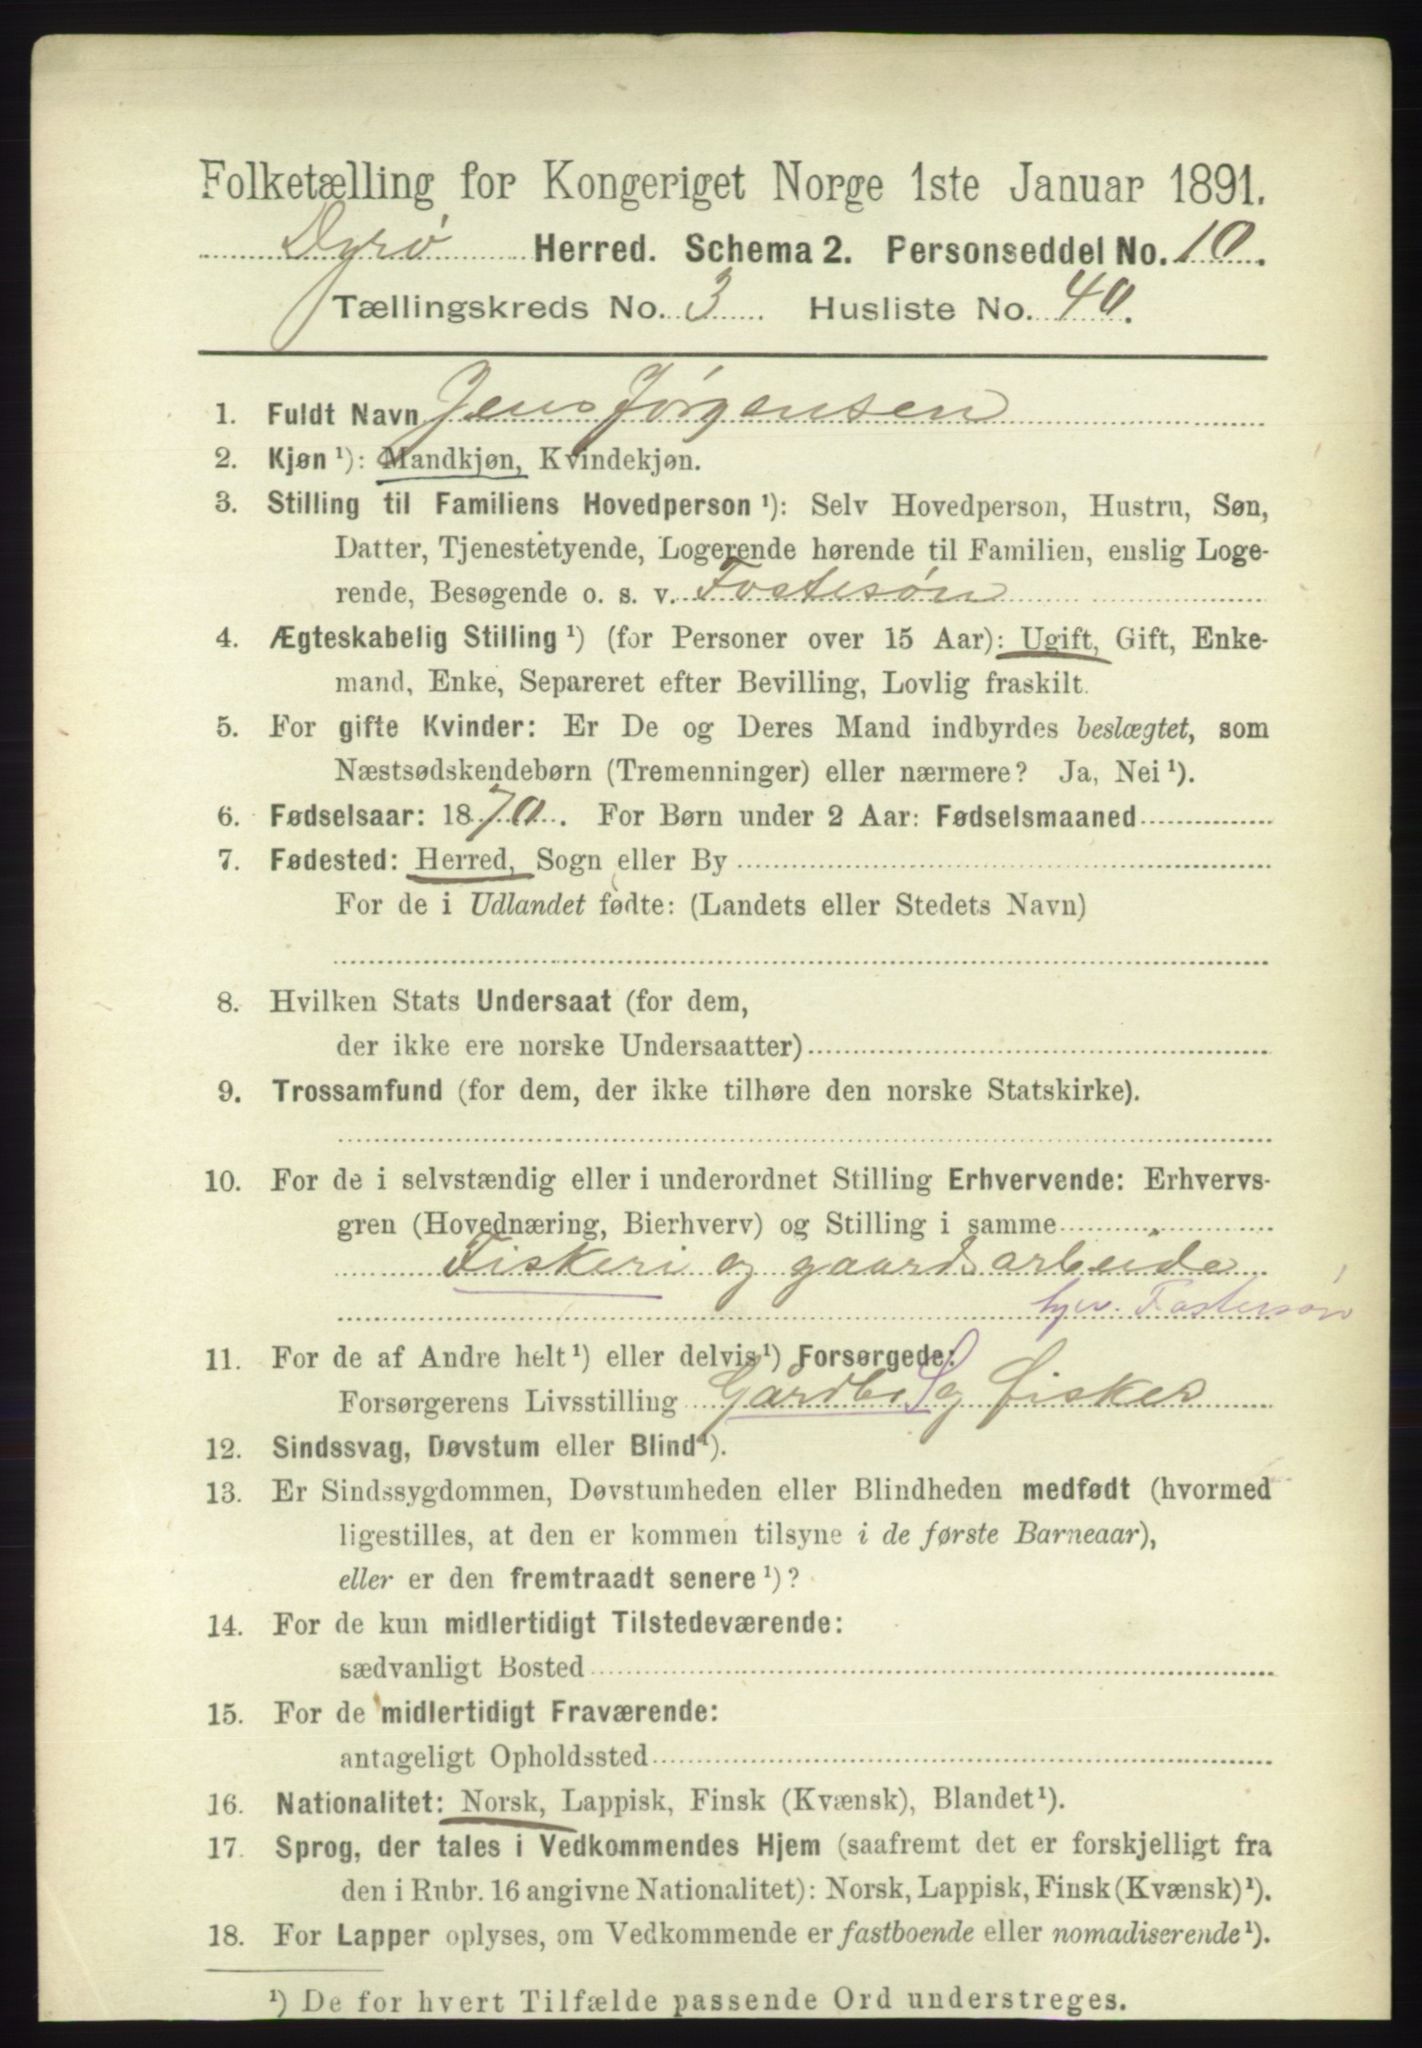 Folketælling for Kongeriget Norge 1ste Januar 1891.
Dyrø Herred. Schema 2. Personseddel No. 10.
Tællingskreds No. 3 Husliste No. 40.
1. Fuldt Navn Jens Jørgensen
2. Kjøn ¹): Mandkjøn, Kvindekjøn.
3. Stilling til Familiens Hovedperson ¹): Selv Hovedperson, Hustru, Søn,
Datter, Tjenestetyende, Logerende hørende til Familien, enslig Loge-
rende, Besøgende o. s. v. Fostesøn
4. Ægteskabelig Stilling ¹) (for Personer over 15 Aar): Ugift, Gift, Enke-
mand, Enke, Separeret efter Bevilling, Lovlig fraskilt.
5. For gifte Kvinder: Er De og Deres Mand indbyrdes beslægtet, som
Næstsødskendebørn (Tremenninger) eller nærmere? Ja, Nei ¹).
6. Fødselsaar: 1870. For Børn under 2 Aar: Fødselsmaaned
7. Fødested: Herred, Sogn eller By
For de i Udlandet fødte: (Landets eller Stedets Navn)
8. Hvilken Stats Undersaat (for dem,
der ikke ere norske Undersaatter)
9. Trossamfund (for dem, der ikke tilhøre den norske Statskirke).
10. For de i selvstændig eller i underordnet Stilling Erhvervende: Erhvervs-
gren (Hovednæring, Bierhverv) og Stilling i samme
Fiskeri og gaardsarbeide
hjv. Fostersøn
11. For de af Andre helt ¹) eller delvis ¹) Forsørgede:
Forsørgerens Livsstilling Gårdbr S og fisker
12. Sindssvag, Døvstum eller Blind ¹).
13. Er Sindssygdommen, Døvstumheden eller Blindheden medfødt (hvormed
ligestilles, at den er kommen tilsyne i de første Barneaar),
eller er den fremtraadt senere ¹)?
14. For de kun midlertidigt Tilstedeværende:
sædvanligt Bosted
15. For de midlertidigt Fraværende:
antageligt Opholdssted
16. Nationalitet: Norsk, Lappisk, Finsk (Kvænsk), Blandet ¹).
17. Sprog, der tales i Vedkommendes Hjem (saafremt det er forskjelligt fra
den i Rubr. 16 angivne Nationalitet): Norsk, Lappisk, Finsk (Kvænsk) ¹).
18. For Lapper oplyses, om Vedkommende er fastboende eller nomadiserende ¹).
¹) De for hvert Tilfælde passende Ord understreges.